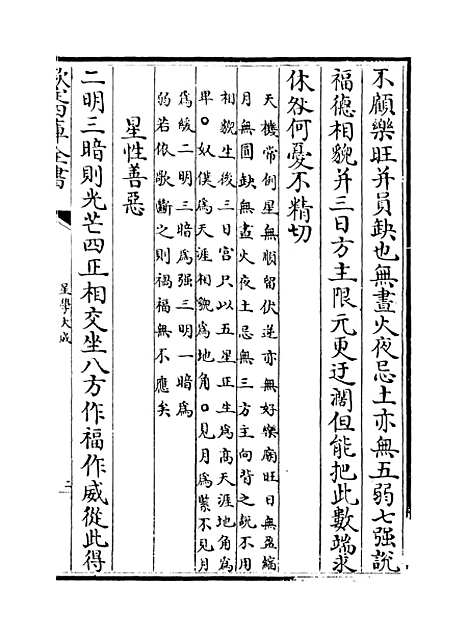 不顧樂旺并員缺也無晝火夜忌土亦無五弱七强說
福德相貌并三日方主限元更迂濶但能把此數端求
休咎何憂不精切
天機常例星無順留伏逆亦無好樂廟旺日無盈縮
月無圓缺無晝火夜土忌無三方主向背之說不用
相貌生後三日宫只以五星正生為高天涯地角為
畀○奴僕為天涯相貌為地角○見月為緊不見月
為緩二明三暗為强三明一暗為
的若依歌斷之則禍福無不應矣
星性善惡
二明三暗則光芒四正相交坐八方作福作威從此得
欽定四庫全書
星學大成
二